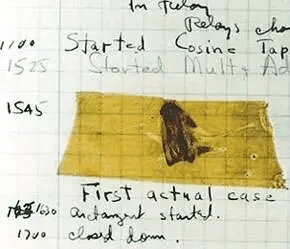 In Relay
Relays cha
1100 Started Cosine Tap
1525 Started Mult+ Ad
1545
First actual case
1630 antangent started.
1700 closed down.